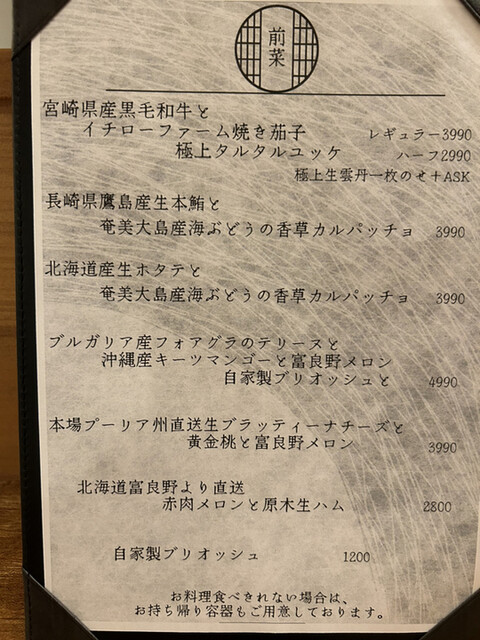 前菜
宮崎県産黒毛和牛と
イチローファーム焼き茄子 レギュラー3990
極上タルタルユッケ ハーフ2990
極上生雲丹一枚のせ＋ASK
長崎県鷹島産生本鮪と
奄美大島産海ぶどうの香草カルパッチョ 3990
北海道産生ホタテと
奄美大島産海ぶどうの香草カルパッチョ 3990
ブルガリア産フォアグラのテリーヌと
沖縄産キーツマンゴーと富良野メロン
自家製ブリオッシュと 4990
本場プーリア州直送生ブラッティーナチーズと
黄金桃と富良野メロン 3990
北海道富良野より直送
赤肉メロンと原木生ハム 2800
自家製ブリオッシュ 1200
お料理食べきれない場合は、
お持ち帰り容器もご用意しております。